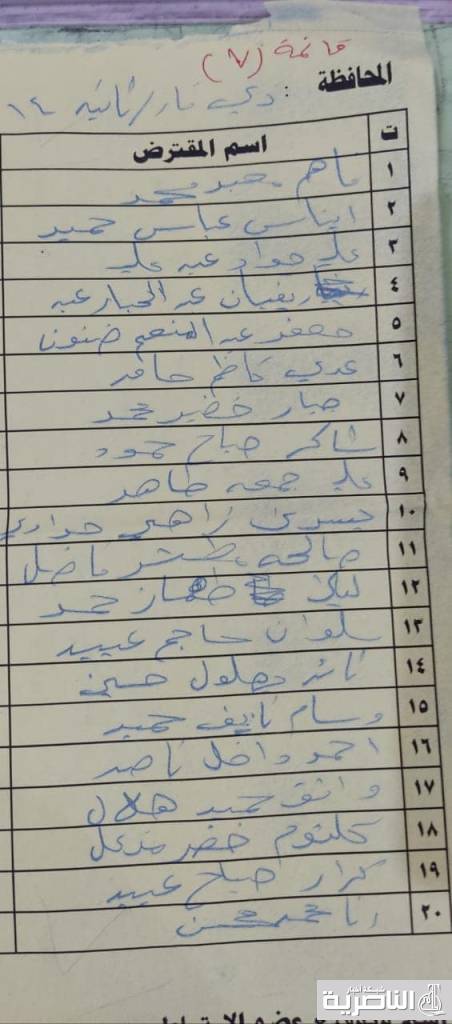 قائمة (٧)
المحافظة : ذي قار/ثانيه ١٤
ت اسم المقترض
١ باهم عبد محمد
٢ ايناس عباس حميد
٣ علي جواد عبد علي
٤ ريفان عبد الجبار عبد
٥ جعفر عبد المنعم ضنون
٦ عدي كاظم حامد
٧ جبار خضير محمد
٨ شاكر صباح حمود
٩ علي جمعه طاهر
١٠ يسرى زاهي
١١ صالحه فاضل
١٢ ليلى حمد
١٣ سلوان حاجم عبيد
١٤ ثائر بهلول حسين
١٥ وسام نايف حميد
١٦ احمد داخل ناصر
١٧ واثق حميد هلال
١٨ كلثوم خضر
١٩ كرار صباح عبيد
٢٠ رنا محمد محسن
شبكة اخبار
الناصرية